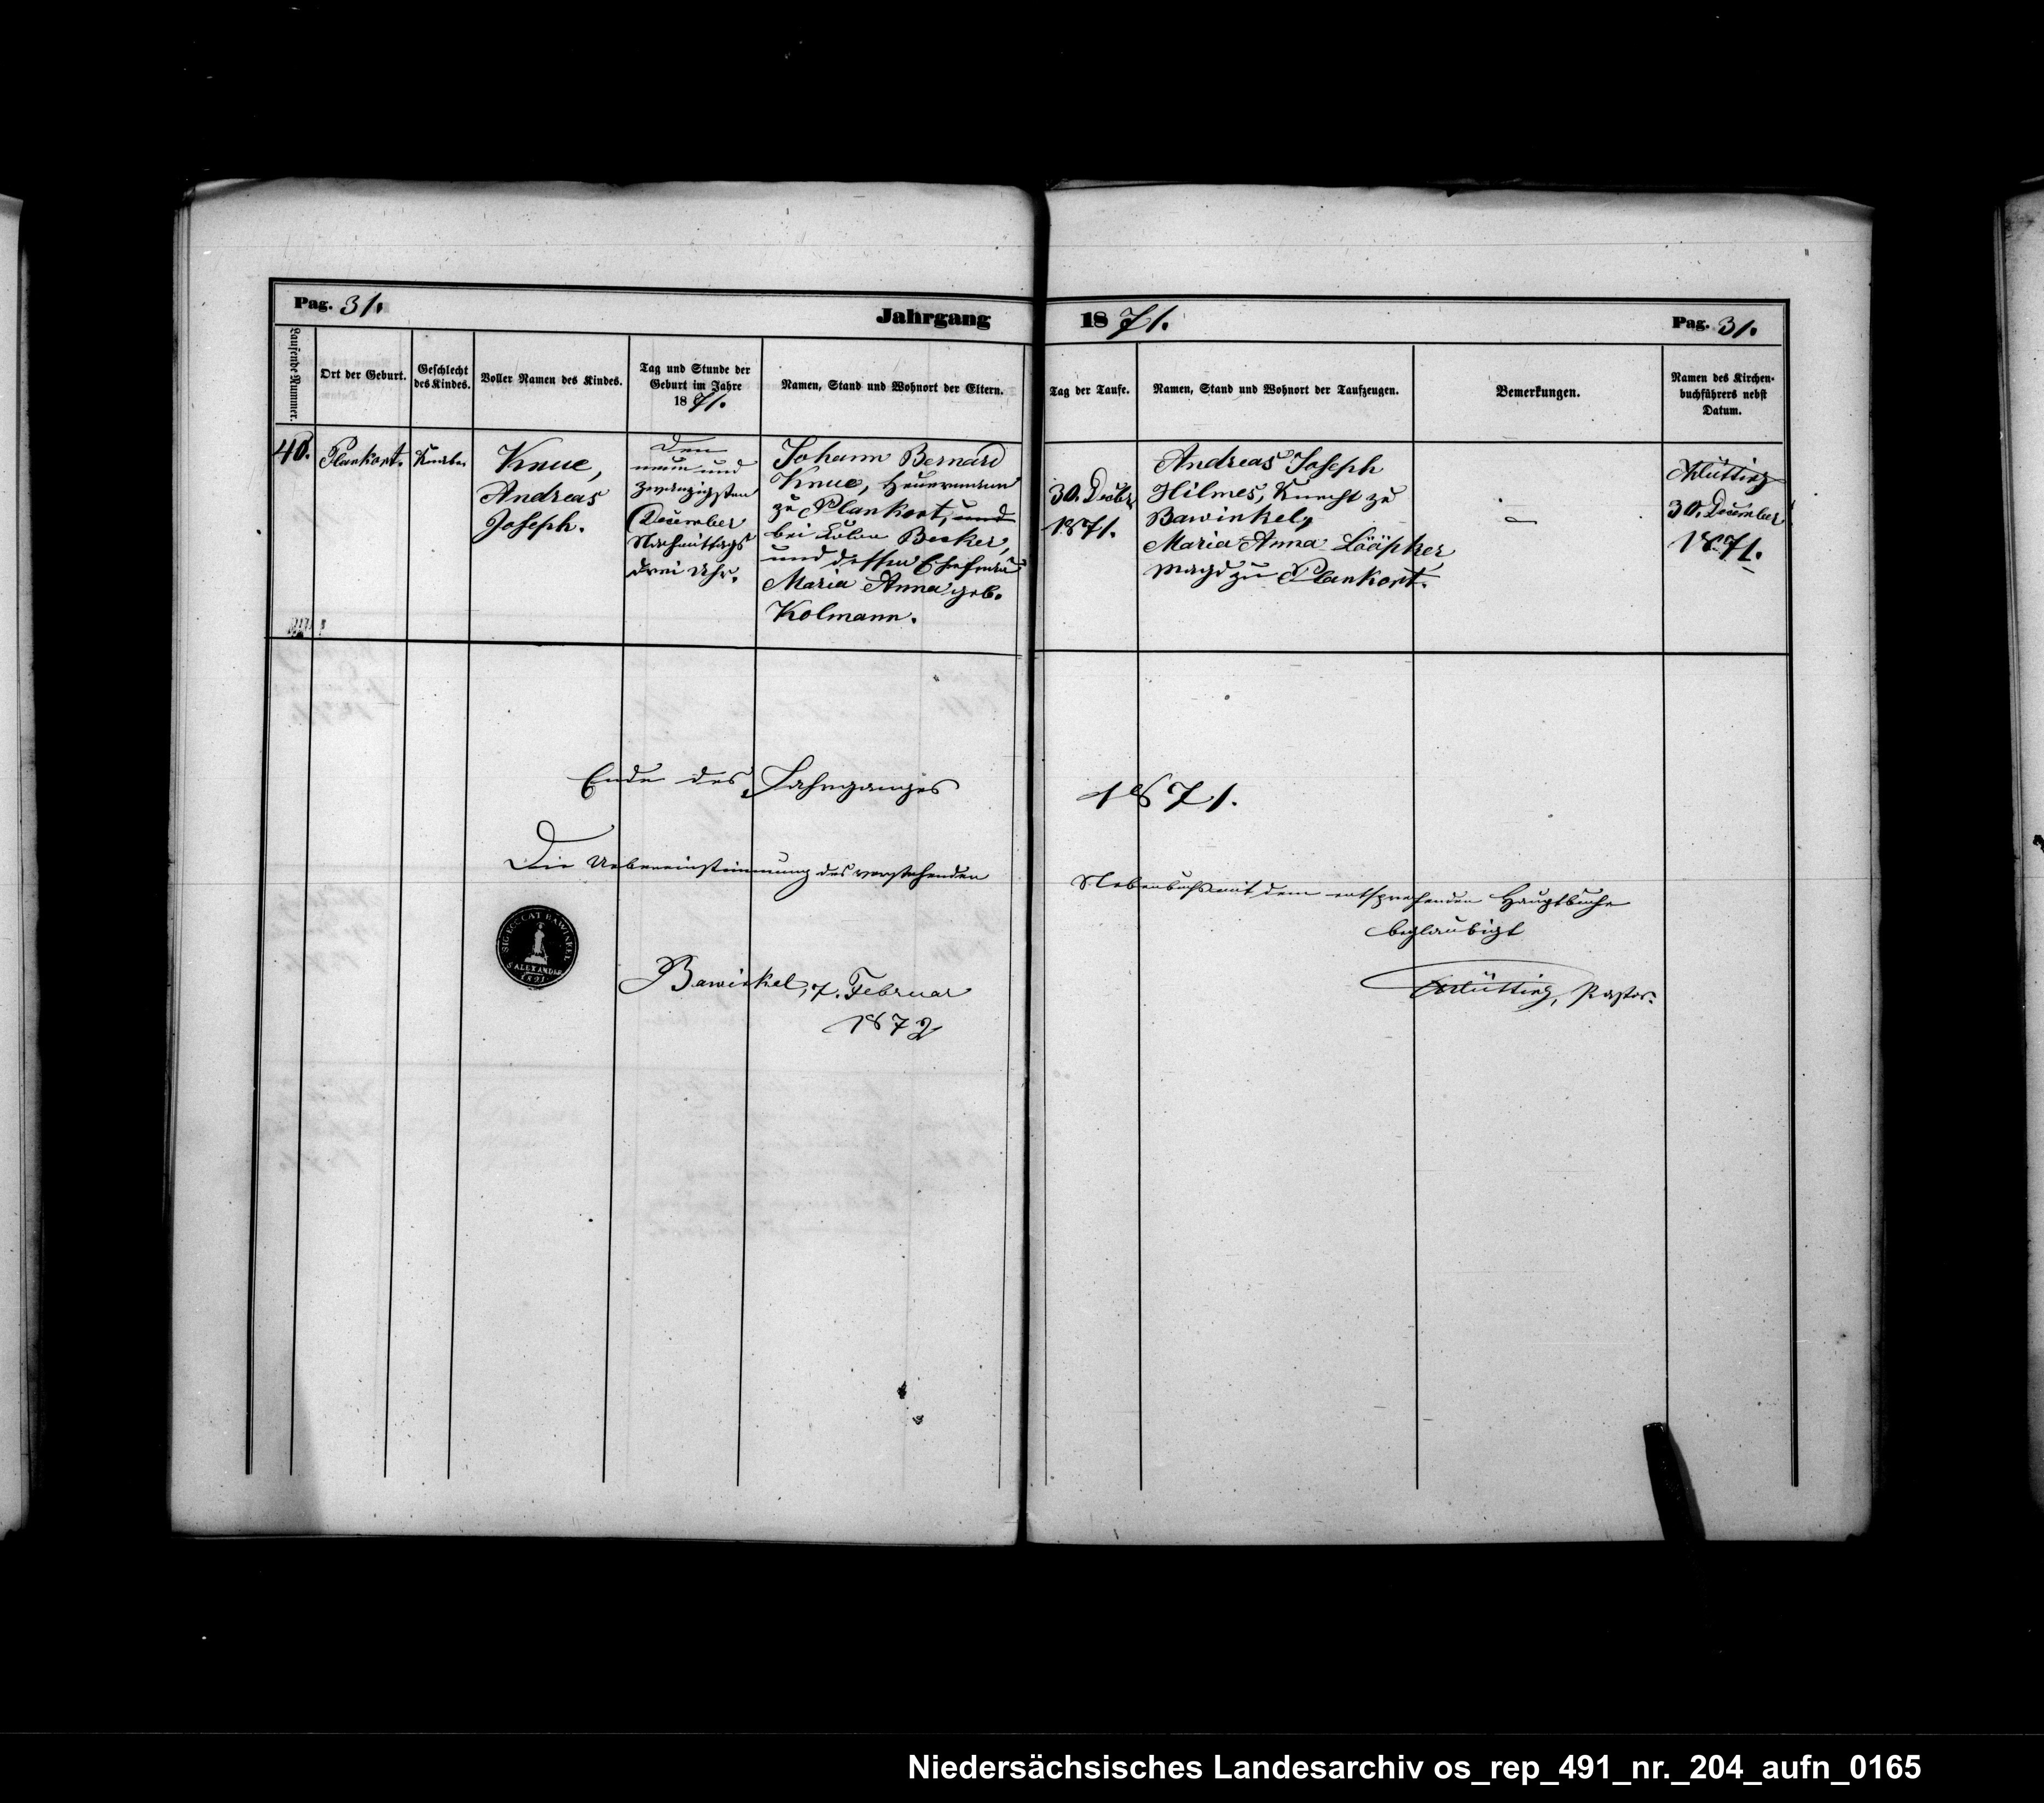 Pag. 31.
Jahrgang 1871.
Pag. 31.
Laufende Nummer.
Ort der Geburt.
Geschlecht
des Kindes.
Voller Namen des Kindes.
Tag und Stunde der
Geburt im Jahre
1871.
Namen, Stand und Wohnort der Eltern.
Tag der Taufe.
Namen, Stand und Wohnort der Taufzeugen.
Bemerkungen.
Namen des Kirchen-
buchführers nebst
Datum.
40.
Plankort.
Knabe.
Knue,
Andreas
Joseph.
Den
neun und
zwanzigsten
December
Nachmittags
drei Uhr.
Johann Bernard
Knue, Heuermann
zu Plankort, und
bei Colon Becker,
und dessen Ehefrau
Maria Anna geb.
Kolmann.
30. Decbr
1871.
Andreas Joseph
Hilmes, Knecht zu
Bawinkel,
Maria Anna Lööpker
Magd zu Plankort.
—
30. December
1871.
Ende des Jahrganges 1871.
Die Uebereinstimmung des vorstehenden Nebenbuchs mit dem entsprechenden Hauptbuche
beglaubigt
SIG ECC CAT BAWINKEL
S. ALEXANDER
1821
Bawinkel, 7. Februar
1872
Pastor.
Niedersächsisches Landesarchiv os_rep_491_nr._204_aufn_0165